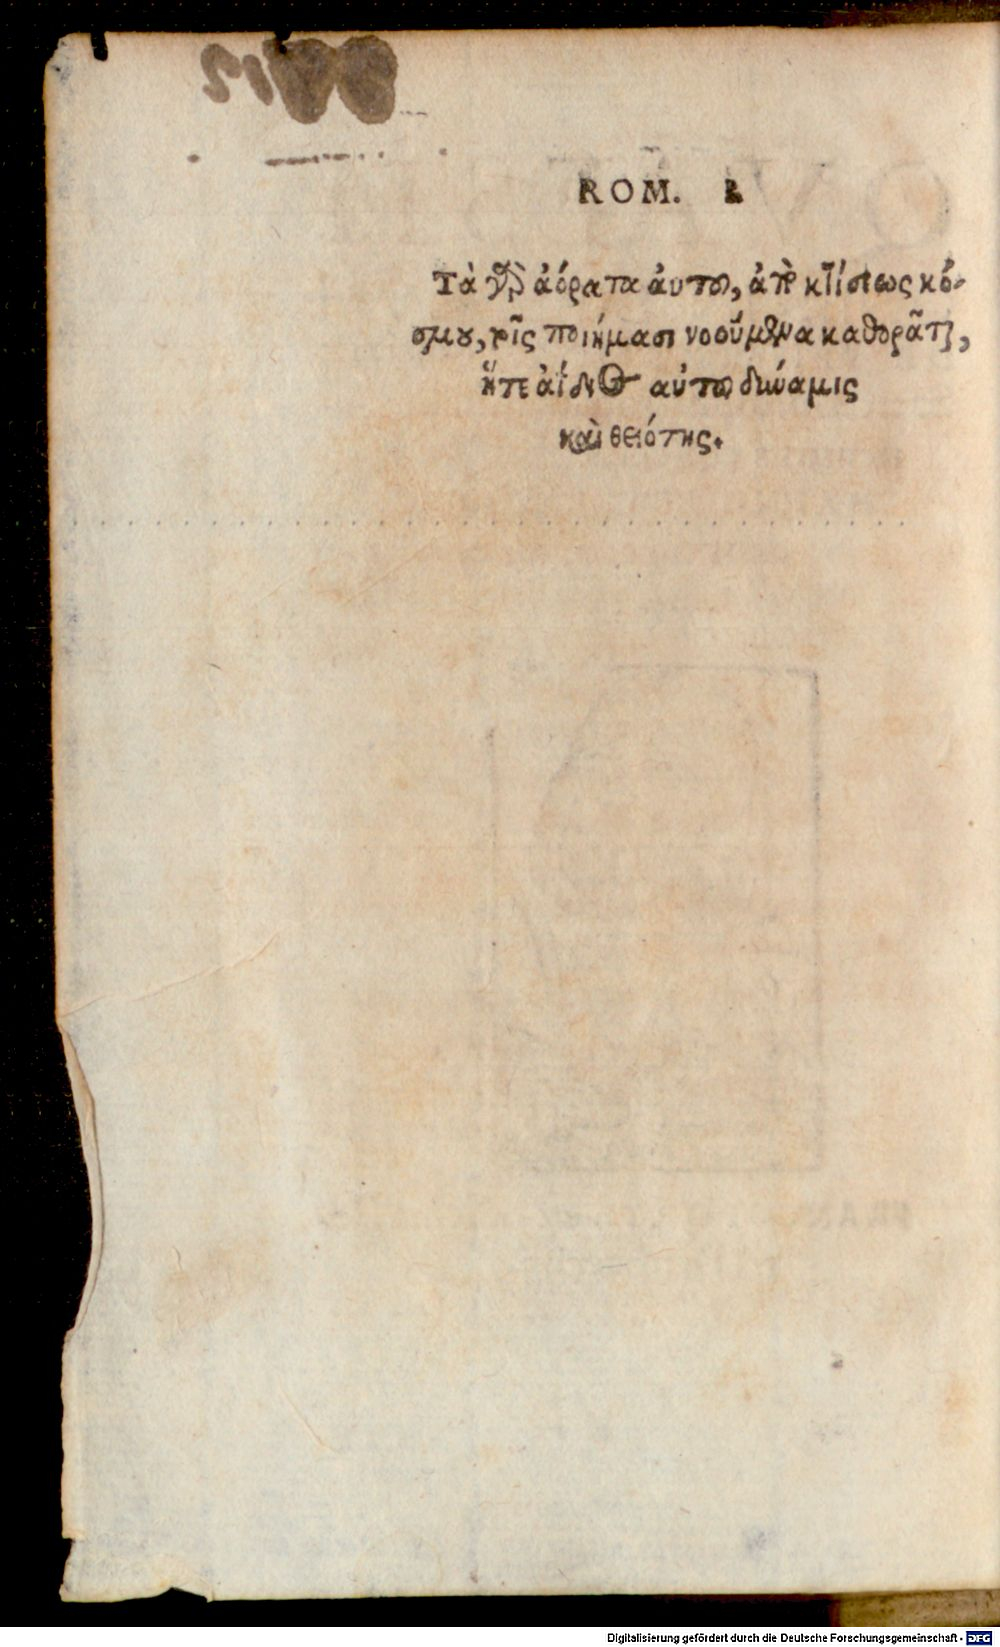 ROM.
Τὰ γὰρ ἀόρατα ἀυτου, ἀπὸ κτίσεως κό-
σμου, τοῖς ποιήμασι νοούμενα καθορᾶται,
ἥτε ἀΐδιος αὐτου δύναμις
καὶ θειότης.
Digitalisierung gefördert durch die Deutsche Forschungsgemeinschaft - DFG